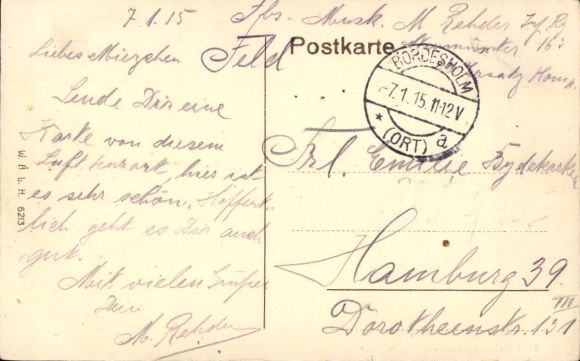 7.1.15
Abs. Musk. M Rehder Inf. R.
Feld
Postkarte
Neumünster 163
Ersatz Komp.
BORDESHOLM
-7.1.15.11-12V
* (ORT) a
Liebes Miezchen
Sende Dir eine
Karte von diesem
Luftkurort, hier ist
es sehr schön. Hoffent-
lich geht es Dir auch
gut.
Mit vielen Grüßen
Dein
M. Rehder
W. R. b. H. 6213
Frl. Emilie
Hamburg 39.
III
Dorotheenstr. 131